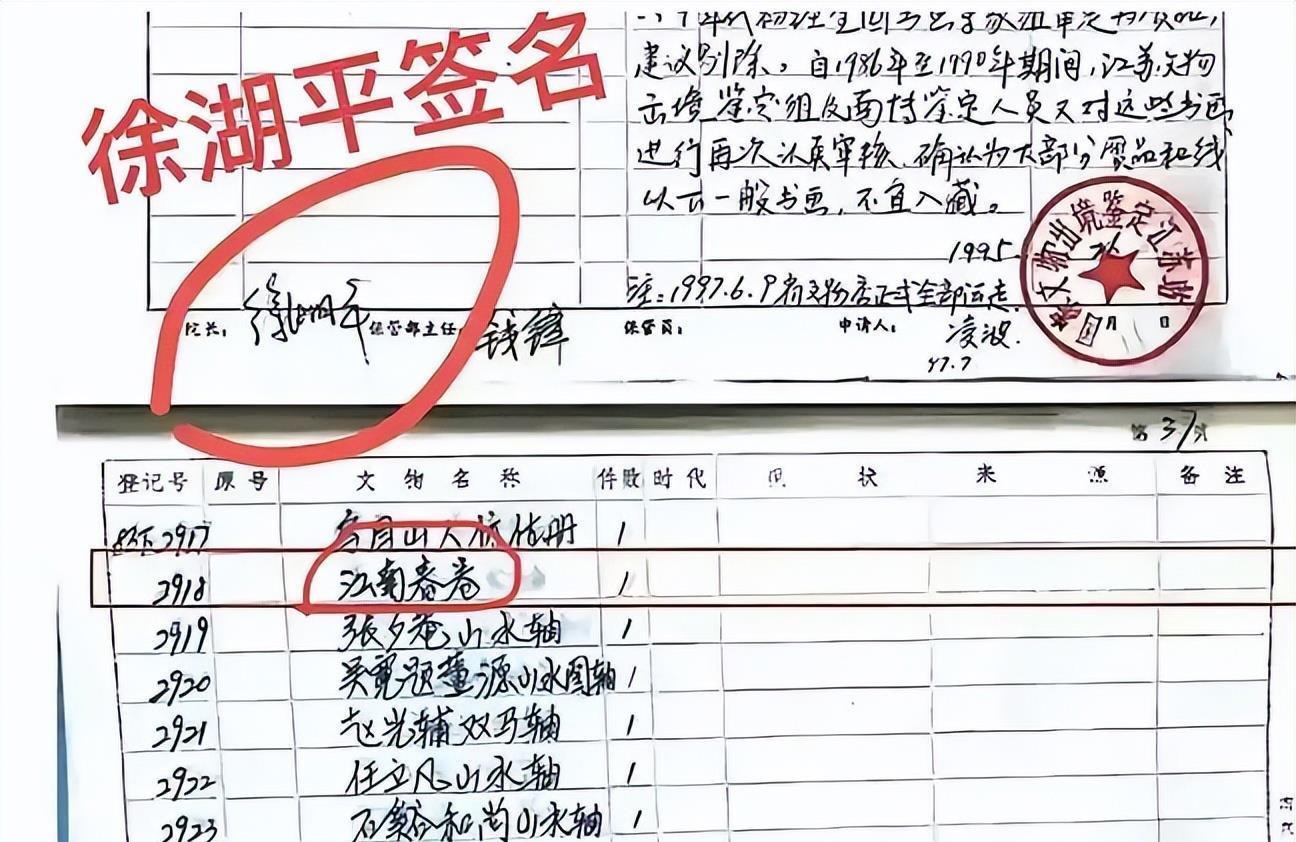 徐湖平签名
建议剔除。自1986年至1990年期间,江苏文物
出境鉴定组及面持鉴定人员又对这些书画
进行再次认真审核,确认为大部分赝品和线
以下一般书画,不宜入藏。
1995
注:1997.6.9省文物店正式全部运走.
院长: 徐湖平 保管部主任: 钱锋 保管员: 申请人: 凌波.
97.7
文物出境鉴定江苏站
月 日
第37页
登记号 原号 文物名称 件数 时代 现状 来源 备注
2917 1
2918 江南春卷 1
2919 张夕庵山水轴 1
2920 吴宽题董源山水图轴 1
2921 赵光辅双马轴 1
2922 任立凡山水轴 1
2923 石谿和尚山水轴 1